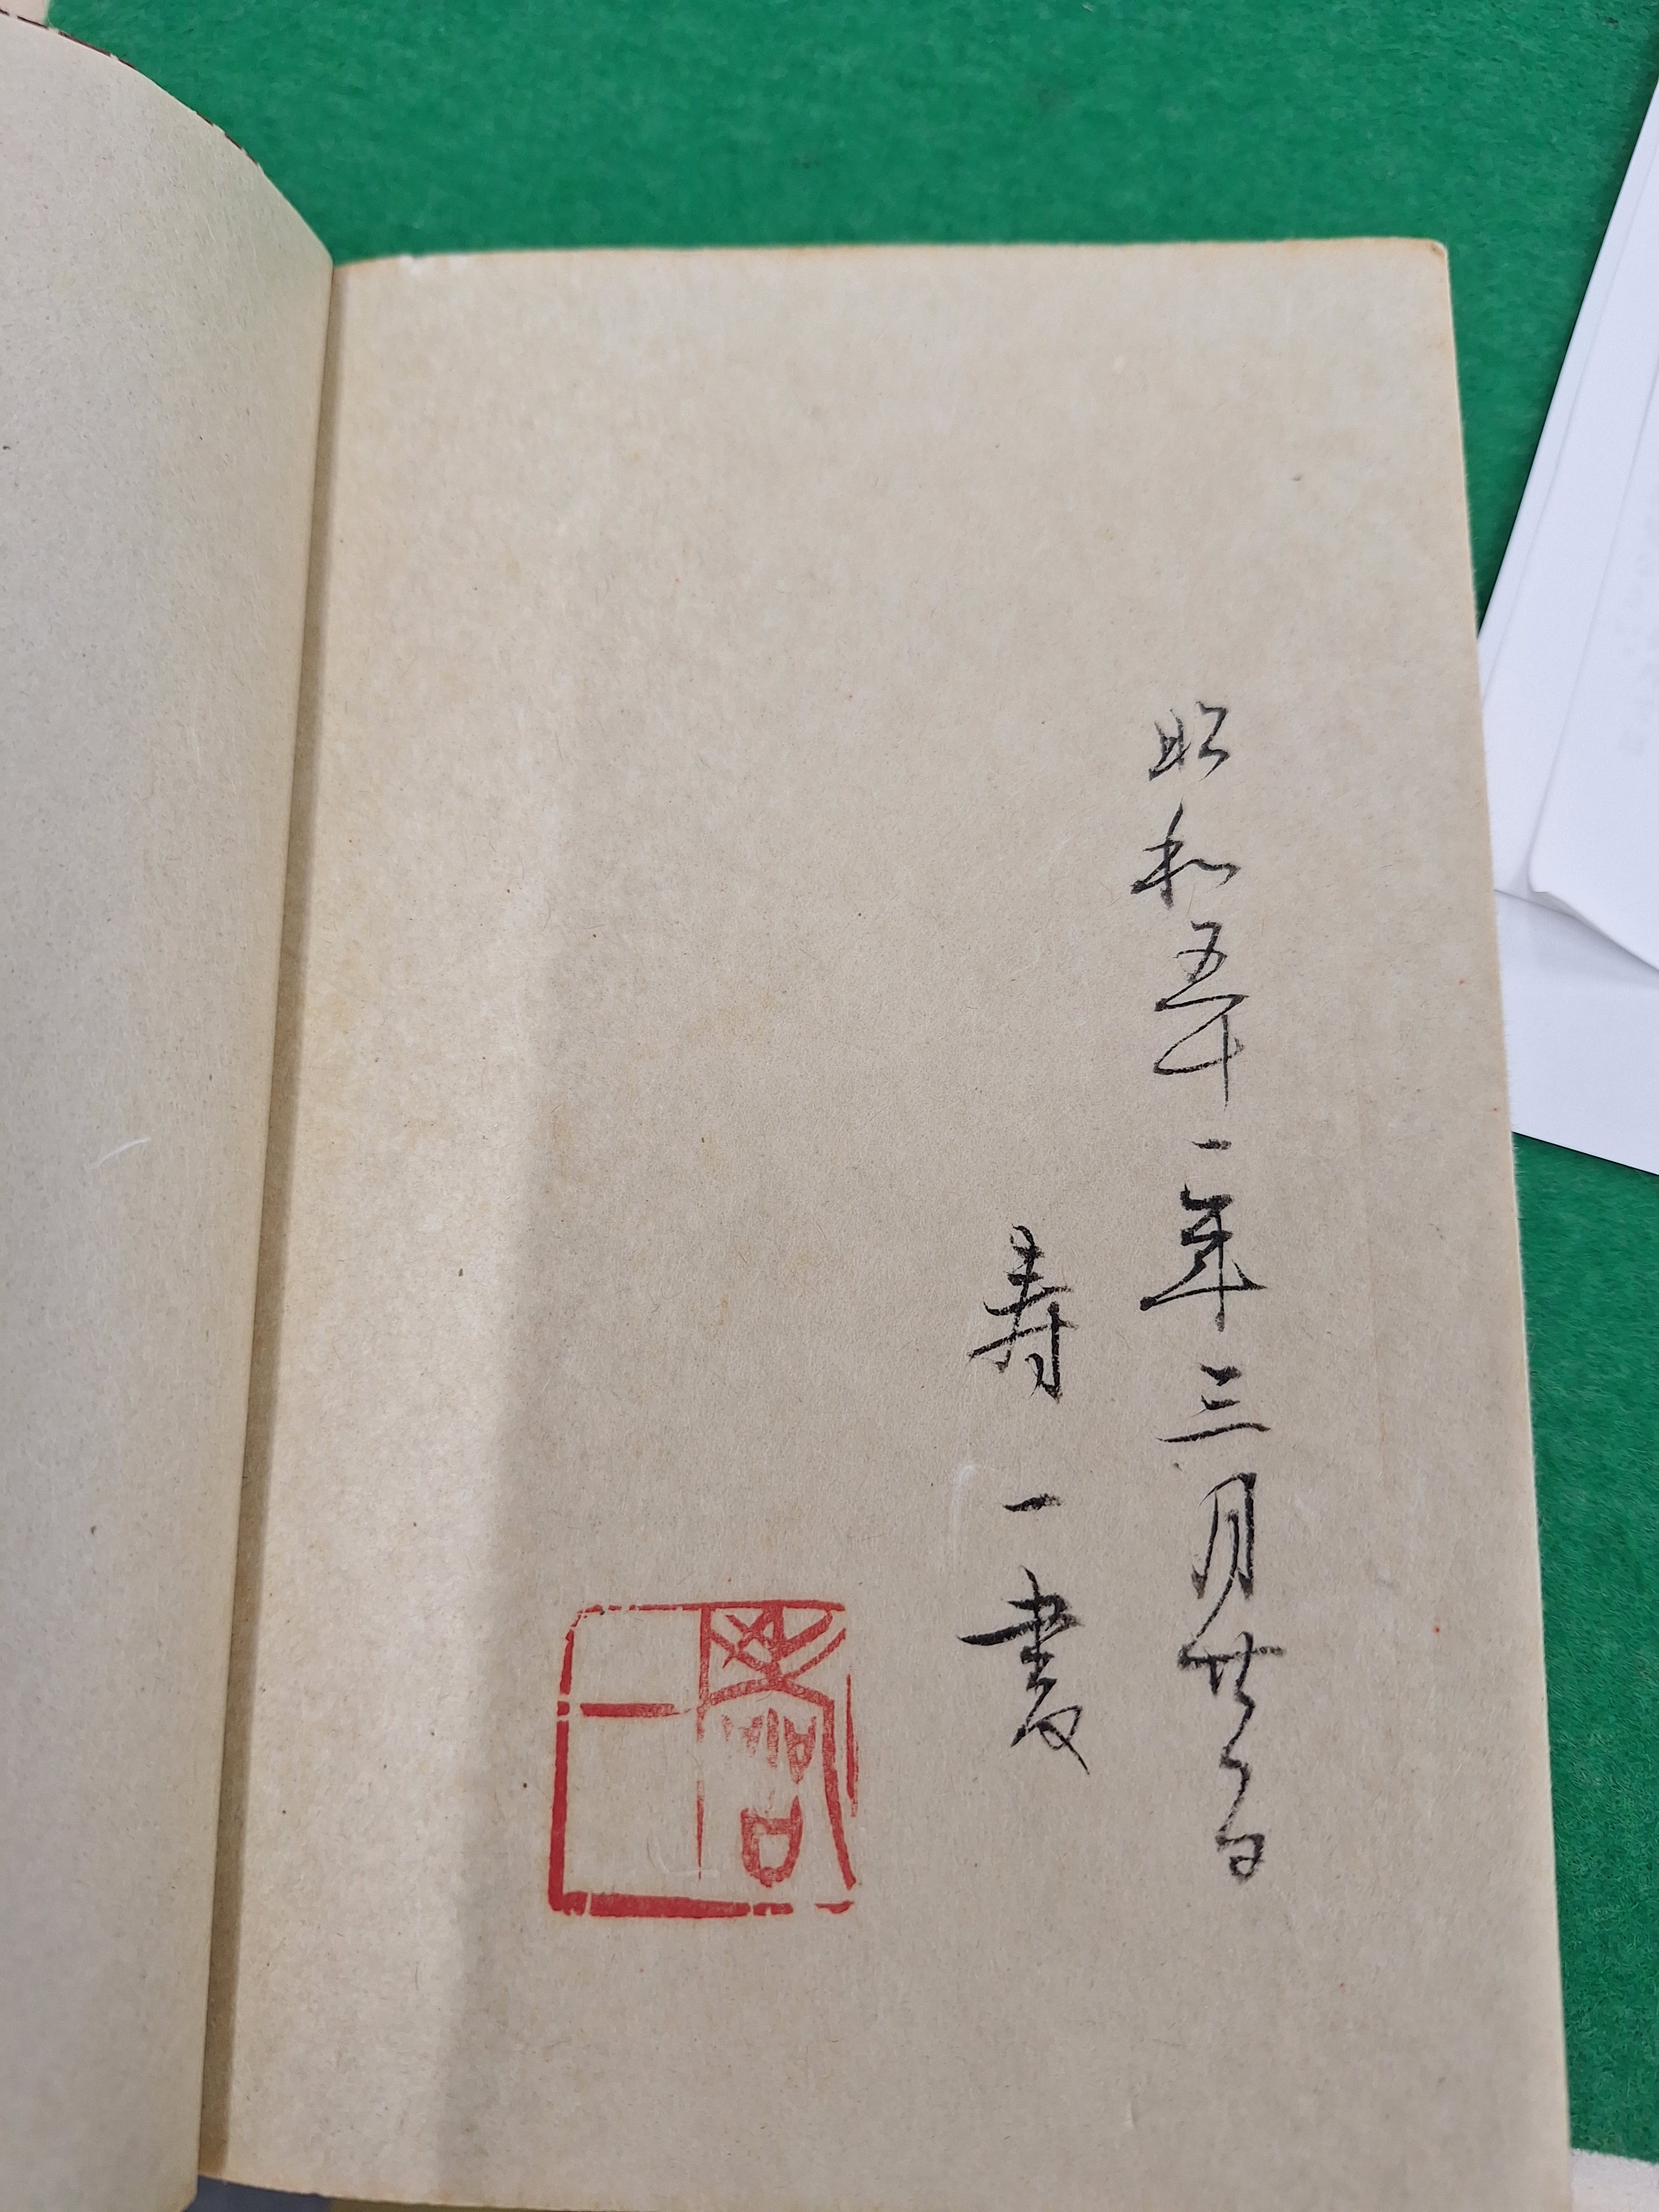 昭和五十二年三月廿日
寿一書
壽一